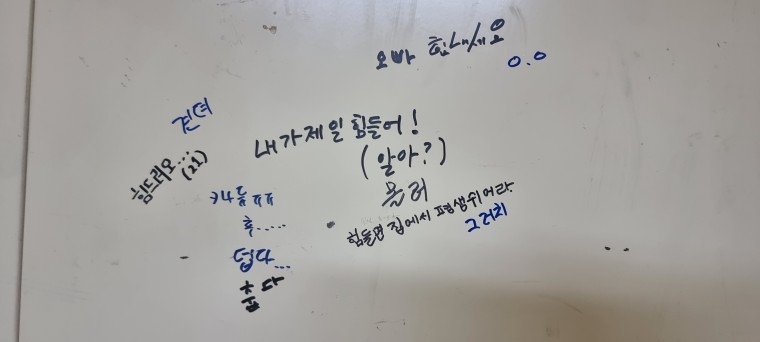 오빠 힘내세요
0.0
견뎌
내가 제일 힘들어!
(알아?)
몰러
힘드러오...
(21)
후.....
덥다...
춥다
힘들면 집에서 평생 쉬어라
그러치